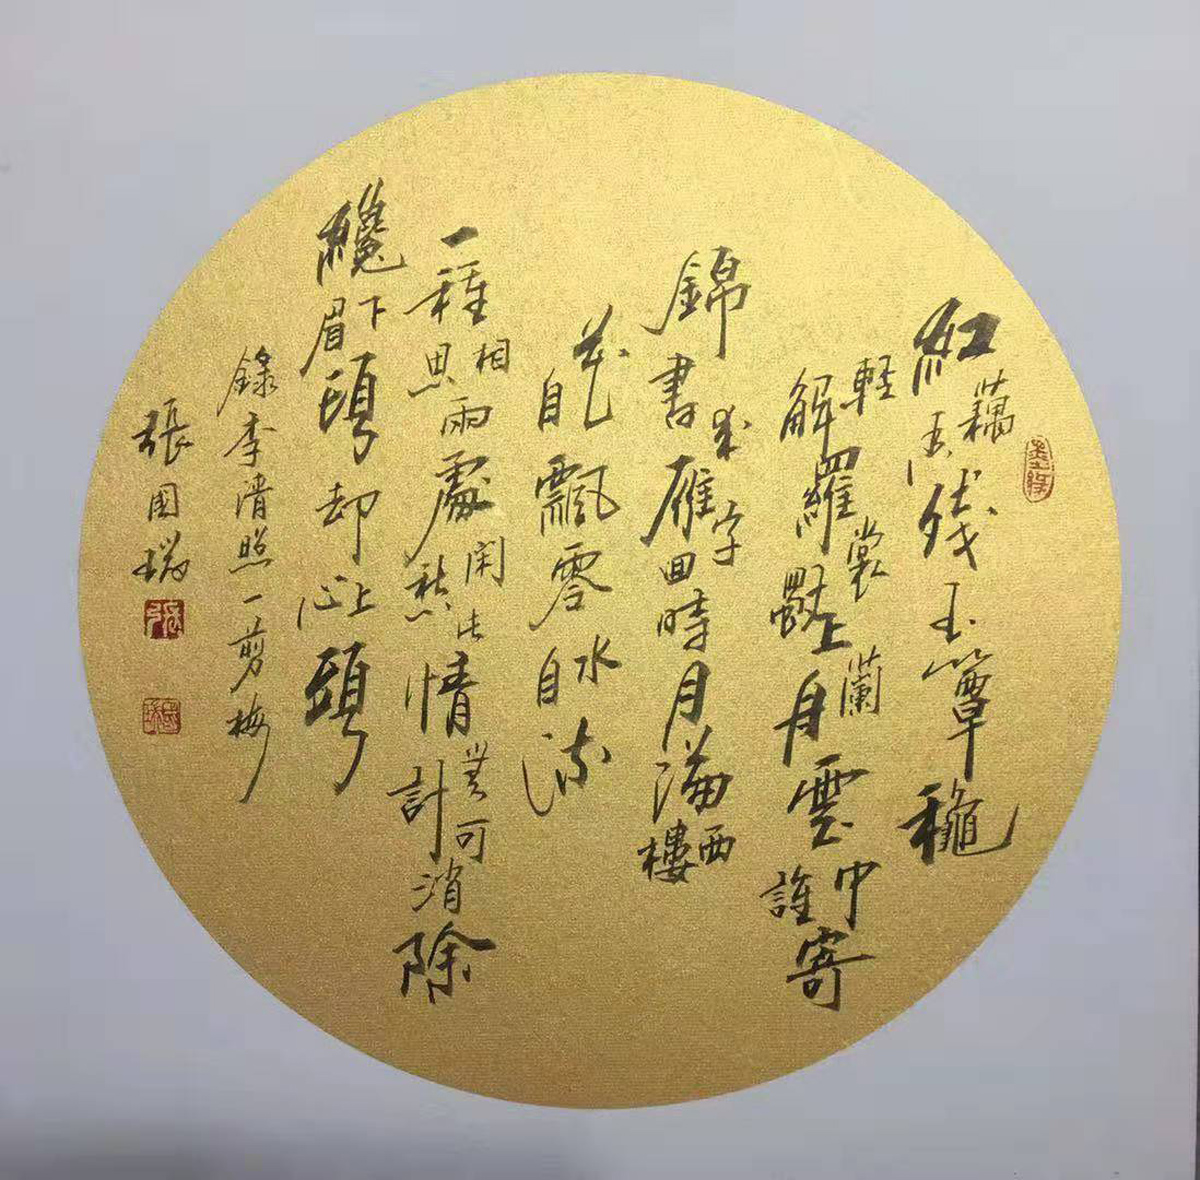 紅藕香残玉簟穐
輕解羅裳獨上蘭舟雲中誰寄
錦書來雁字回時月滿西樓
花自飄零水自流
一種相思兩處閑愁此情無計可消除
纔下眉頭却上心頭
錄李清照一剪梅
張國